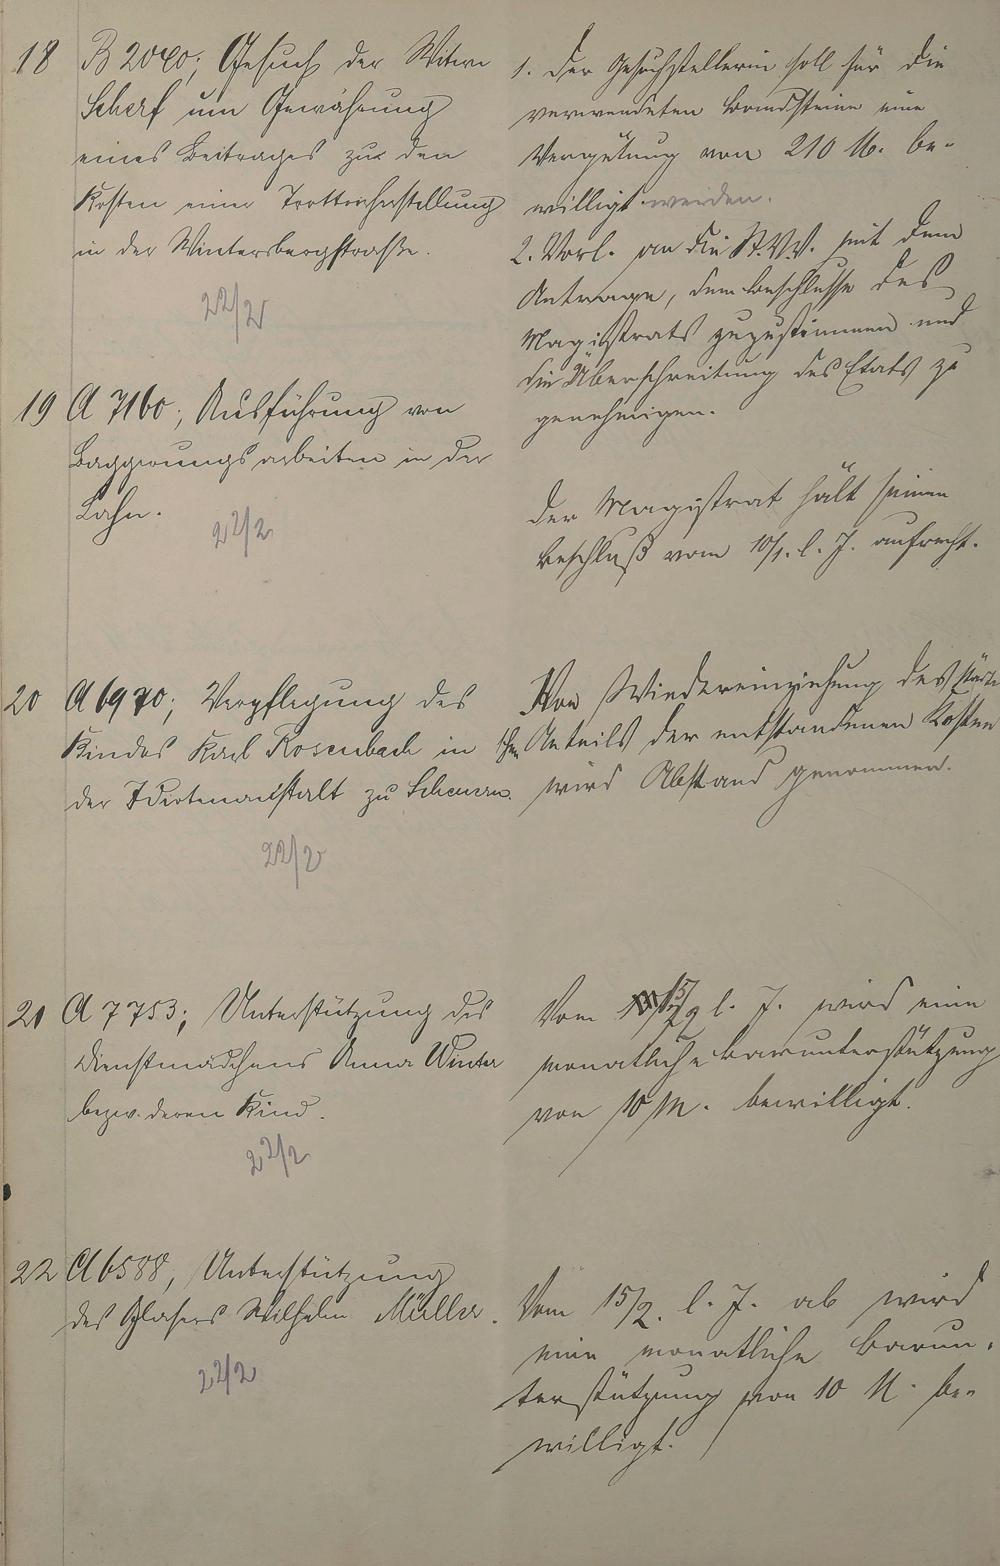 18 B 2040; Gesuch der Witwe
Scherf um Gewährung
eines Beitrages zu den
Kosten einer Trottoirherstellung
in der Wintersbergstraße.
22/2
1. Der Gesuchstellerin soll für die
verwendeten Bordsteine eine
Vergütung von 210 M. be-
willigt werden.
2. Vorl. an die St.V.V. mit dem
Antrage, dem Beschlusse des
Magistrats zuzustimmen und
die Überschreitung des Etats zu
genehmigen.
19 A 7160; Ausführung von
Baggerungsarbeiten in der
Lahn.
22/2
Der Magistrat hält seinen
Beschluß vom 10/1. l. J. aufrecht.
20 A 6970; Verpflegung des
Kindes Karl Rosenbach in
der Idiotenanstalt zu Scheuern.
22/2
Von Wiedereinziehung des städti-
schen Anteils der entstandenen Kosten
wird Abstand genommen.
21 A 7753; Unterstützung des
Dienstmädchens Anna Winter
bezw. deren Kind.
22/2
Vom 15/2 l. J. wird eine
monatliche Barunterstützung
von 10 M. bewilligt.
22 A 6588, Unterstützung
des Glasers Wilhelm Müller.
22/2
Vom 15/2. l. J. ab wird
eine monatliche Barun-
terstützung von 10 M. be-
willigt.